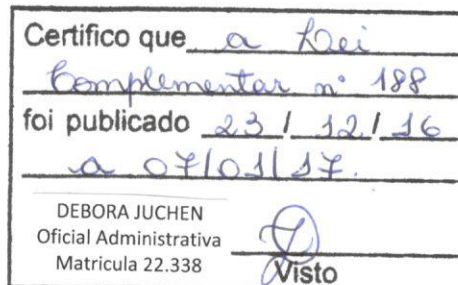 Certifico que a Lei
Complementar nº 188
foi publicado 23/12/16
a 07/01/17.
DEBORA JUCHEN
Oficial Administrativa
Matricula 22.338
Visto